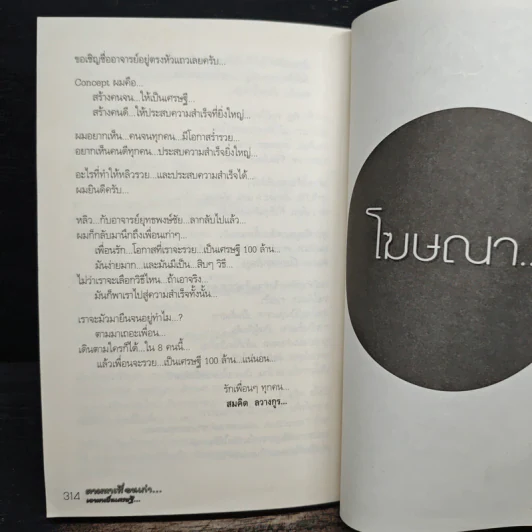 ขอเชิญชื่ออาจารย์อยู่ตรงหัวแถวเลยครับ...
Concept ผมคือ...
สร้างคนจน...ให้เป็นเศรษฐี...
สร้างคนดี...ให้ประสบความสำเร็จที่ยิ่งใหญ่...
ผมอยากเห็น...คนจนทุกคน...มีโอกาสร่ำรวย...
อยากเห็นคนดีทุกคน...ประสบความสำเร็จยิ่งใหญ่...
อะไรที่ทำให้หลิวรวย...และประสบความสำเร็จได้...
ผมยินดีครับ...
หลิว...กับอาจารย์ยุทธพงษ์ชัย...ลากลับไปแล้ว...
ผมก็กลับมานึกถึงเพื่อนเก่าๆ...
เพื่อนรัก...โอกาสที่เราจะรวย...เป็นเศรษฐี 100 ล้าน...
มันง่ายมาก...และมันมีเป็น...สิบๆ วิธี...
ไม่ว่าเราจะเลือกวิธีไหน...ถ้าเอาจริง...
มันก็พาเราไปสู่ความสำเร็จทั้งนั้น...
เราจะมัวมายืนจนอยู่ทำไม...?
ตามมาเถอะเพื่อน...
เดินตามใครก็ได้...ใน 8 คนนี้...
แล้วเพื่อนจะรวย...เป็นเศรษฐี 100 ล้าน...แน่นอน...
รักเพื่อนๆ ทุกคน...
สมคิด ลวางกูร...
314
โฆษณา...